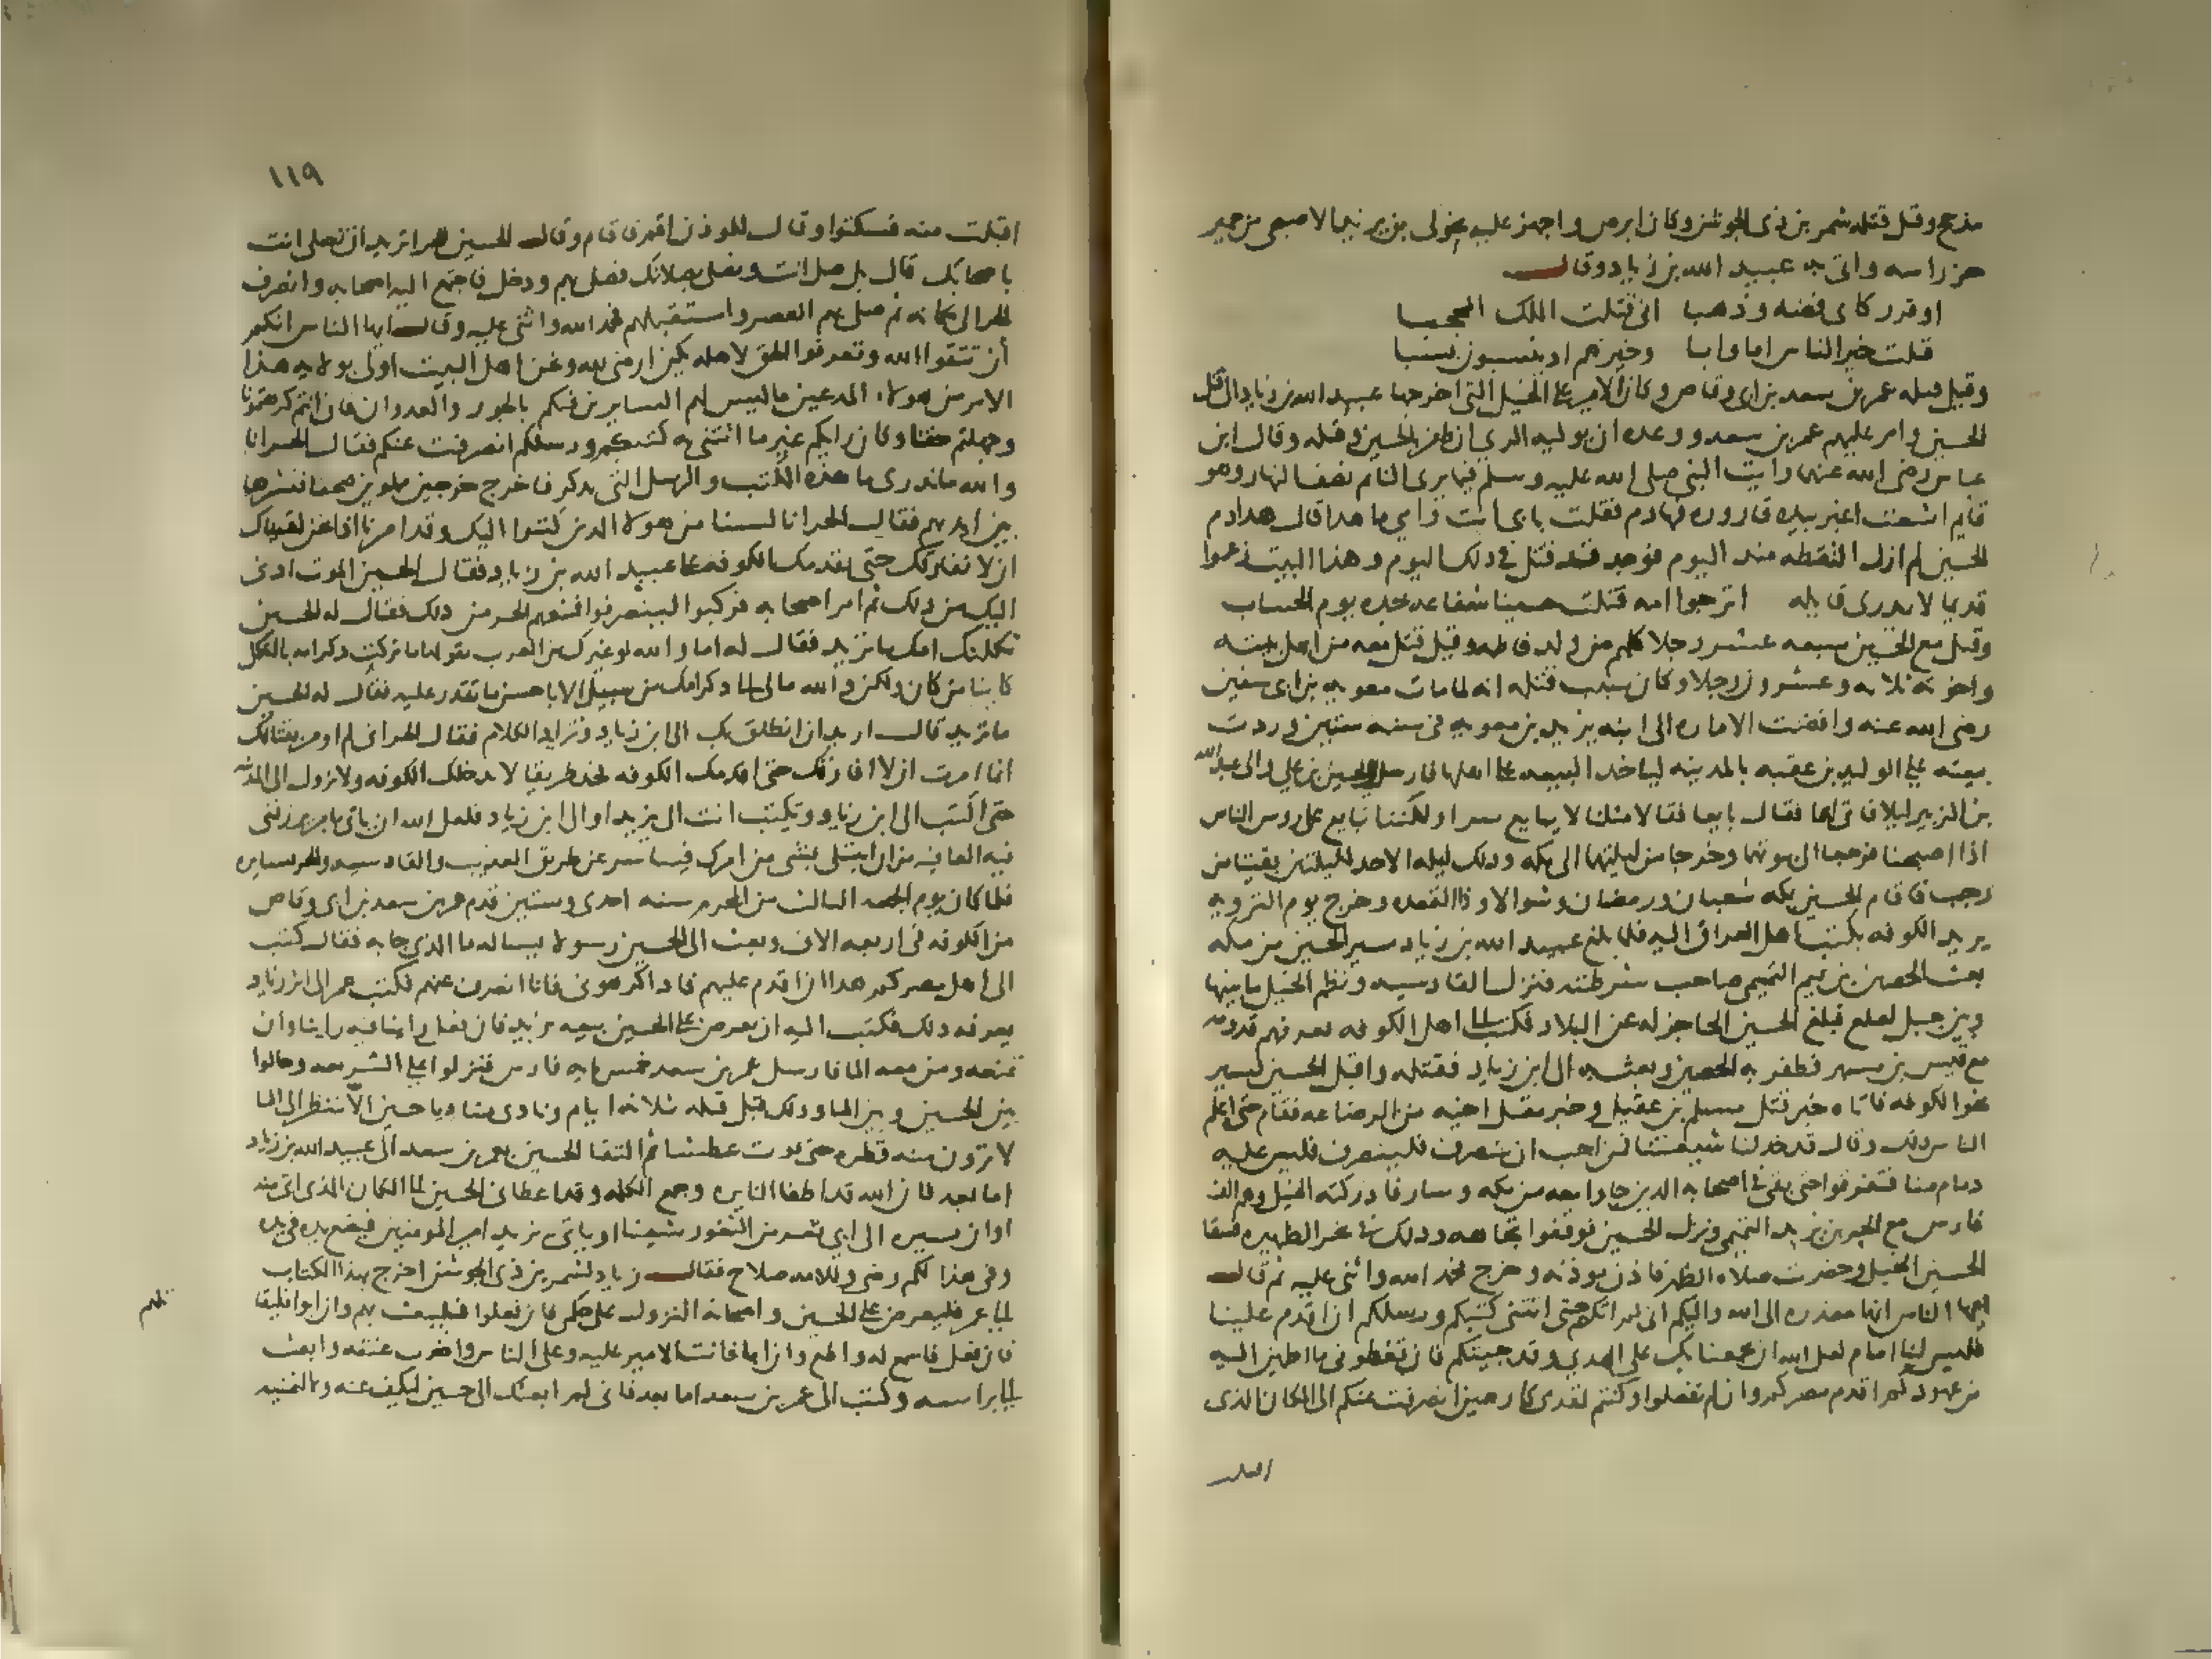 مذحج وقيل قتله شمر بن ذى الجوشن وكان ابرص واجهز عليه خولى بن يزيد الاصبحى من حمير
حز راسه واتى به عبيد الله بن زياد وقال
اوقر ركابى فضه وذهبا انى قتلت الملك المحجبا
قتلت خير الناس اما وابا وخيرهم اذ ينسبون نسبا
وقيل قتله عمر بن سعد بن ابى وقاص وكان الامير على الخيل التى اخرجها عبيد الله بن زياد الى قتل
الحسين وامر عليهم عمر بن سعد ووعده ان يوليه الرى ان ظفر بالحسين وقتله وقال ابن
عباس رضى الله عنهما رايت النبى صلى الله عليه وسلم فيما يرى النائم نصف النهار وهو
قايم اشعث اغبر بيده قاروره فيها دم فقلت بابى انت وامى ما هذا قال هذا دم
الحسين لم ازل التقطه منذ اليوم فوجد قد قتل فى ذلك اليوم وهذا البيت زعموا
قديما لا يدرى قايله اترجوا امه قتلت حسينا شفاعه جده يوم الحساب
وقتل مع الحسين سبعه عشر رجلا كلهم من ولد فاطمه وقيل قتل معه من اهل بيته
واخوته ثلاثه وعشرون رجلا وكان سبب قتله انه لما مات معويه بن ابى سفين
رضى الله عنه وافضت الاماره الى ابنه يزيد بن معويه فى سنه ستين وردت
بيعته على الوليد بن عقبه بالمدينه لياخذ البيعه على اهلها فارسل الى الحسين بن على والى عبد الله
بن الزبير ليلا فاتى بهما فقال بايعا فقالا مثلنا لا يبايع سرا ولكننا نبايع على روس الناس
اذا اصبحنا فرجعا الى بيوتهما وخرجا من ليلتهما الى مكه وذلك ليله الاحد لليلتين بقيتا من
رجب فاقام الحسين بمكه شعبان ورمضان وشوالا وذا القعده وخرج يوم الترويه
يريد الكوفه بكتب اهل العراق اليه فلما بلغ عبيد الله بن زياد سير الحسين من مكه
بعث الحصين بن تميم التميمى صاحب شرطته فنزل القادسيه ونظم الخيل ما بينها
وبين جبل لعلع فبلغ الحسين الحاجز له عن البلاد فكتب الى اهل الكوفه يعرفهم قدومه
مع قيس بن مسهر فظفر به الحصين وبعث به الى ابن زياد فقتله واقبل الحسين يسير
نحو الكوفه فاتاه خبر قتل مسلم بن عقيل وخبر مقتل اخيه من الرضاعه فقام حتى اعلم
الناس ذلك وقال قد خذلنا شيعتنا فمن احب ان ينصرف فلينصرف فليس عليه
ذمام منا فتفرقوا حتى بقى فى اصحابه الذين جاوا معه من مكه وسار فادركته الخيل وهم الف
فارس مع الحر بن يزيد التميمى ونزل الحسين فوقفوا تجاهه وذلك فى نحر الظهيره فسقا
الحسين الخيل وحضرت صلاه الظهر فاذن موذنه وخرج فحمد الله واثنى عليه ثم قال
ايها الناس انها معذره الى الله واليكم انى لم اتكم حتى اتتنى كتبكم ورسلكم ان اقدم علينا
فليس لنا امام لعل الله ان يجمعنا بك على الهدى وقد جيتكم فان تعطونى ما اطمين اليه
من عهودكم اقدم مصركم وان لم تفعلوا وكنتم لقدومى كارهين انصرفت عنكم الى المكان الذى
١١٩
اقبلت منه فسكتوا وقال للموذن اقم فاقام وقال الحسين للحر اتريد ان تصلى انت
باصحابك قال بل صل انت ونصلى بصلاتك فصلى بهم ودخل فاجتمع اليه اصحابه وانصرف
الحر الى مكانه ثم صلى بهم العصر واستقبلهم فحمد الله واثنى عليه وقال ايها الناس انكم
ان تتقوا الله وتعرفوا الحق لاهله يكن ارضى لله ونحن اهل البيت اولى بولايه هذا
الامر من هولاء المدعين ما ليس لهم السايرين فيكم بالجور والعدوان فان انتم كرهتمونا
وجهلتم حقنا وكان رايكم غير ما اتتنى به كتبكم ورسلكم انصرفت عنكم فقال الحر انا
والله ما ندرى ما هذه الكتب والرسل التى تذكر فاخرج خرجين مملوين صحفا فنثرها
بين ايديهم فقال الحر انا لسنا من هولا الذين كتبوا اليك وقد امرنا اذا نحن لقيناك
ان لا نفارقك حتى نقدمك الكوفه على عبيد الله بن زياد فقال الحسين الموت ادنى
اليك من ذلك ثم امر اصحابه فركبوا لينصرفوا فمنعهم الحر من ذلك فقال له الحسين
ثكلتك امك ما تريد فقال له اما والله لو غيرك من العرب يقولها ما تركت ذكر امه بالثكل
كاينا من كان ولكن والله مالى الى ذكر امك من سبيل الا باحسن ما نقدر عليه فقال له الحسين
ما تريد قال اريد ان انطلق بك الى ابن زياد وتزايد الكلام فقال الحر انى لم اومر بقتالك
انما امرت ان لا افارقك حتى اقدمك الكوفه فخذ طريقا لا يدخلك الكوفه ولا يردك الى المدينه
حتى اكتب الى ابن زياد وتكتب انت الى يزيد او الى ابن زياد فلعل الله ان ياتى بامر يرزقنى
فيه العافيه من ان ابتلى بشى من امرك فتياسر عن طريق العذيب والقادسيه والحر يسايره
فلما كان يوم الجمعه الثالث من المحرم سنه احدى وستين قدم عمر بن سعد بن ابى وقاص
من الكوفه فى اربعه الاف وبعث الى الحسين رسولا يساله ما الذى جا به فقال كتب
الى اهل مصركم هذا ان اقدم عليهم فاذا كرهونى فانا انصرف عنهم فكتب عمر الى ابن زياد
يعرفه ذلك فكتب اليه ان يعرض على الحسين بيعه يزيد فان فعل راينا فيه راينا وان
تمنعه ومن معه الما فارسل عمر بن سعد خمس مايه فارس فنزلوا على الشريعه وحالوا
بين الحسين وبين الما وذلك قبل قتله بثلاثه ايام ونادى مناد يا حسين الا تنظر الى الما
لا ترون منه قطره حتى تموت عطشا ثم التقا الحسين بعمر بن سعد الى عبيد الله بن زياد
اما بعد فان الله قد اطفا النايره وجمع الكلمه وقد اعطانى الحسين الى المكان الذى اتى منه
او ان نسيره الى اى ثغر من الثغور شينا او ياتى يزيد امير المومنين فيضع يده فى يده
وفى هذا لكم رضى وللامه صلاح فقال زياد لشمر بن ذى الجوشن اخرج بهذا الكتاب
الى عمر فليعرض على الحسين واصحابه النزول على حكمى فان فعلوا فليبعث بهم وان ابوا فليقاتلهم
فان فعل فاسمع له واطع وان ابا فانت الامير عليه وعلى الناس واضرب عنقه وابعث
الى براسه وكتب الى عمر بن سعد اما بعد فانى لم ابعثك الى حسين لتكف عنه ولا لتمنيه